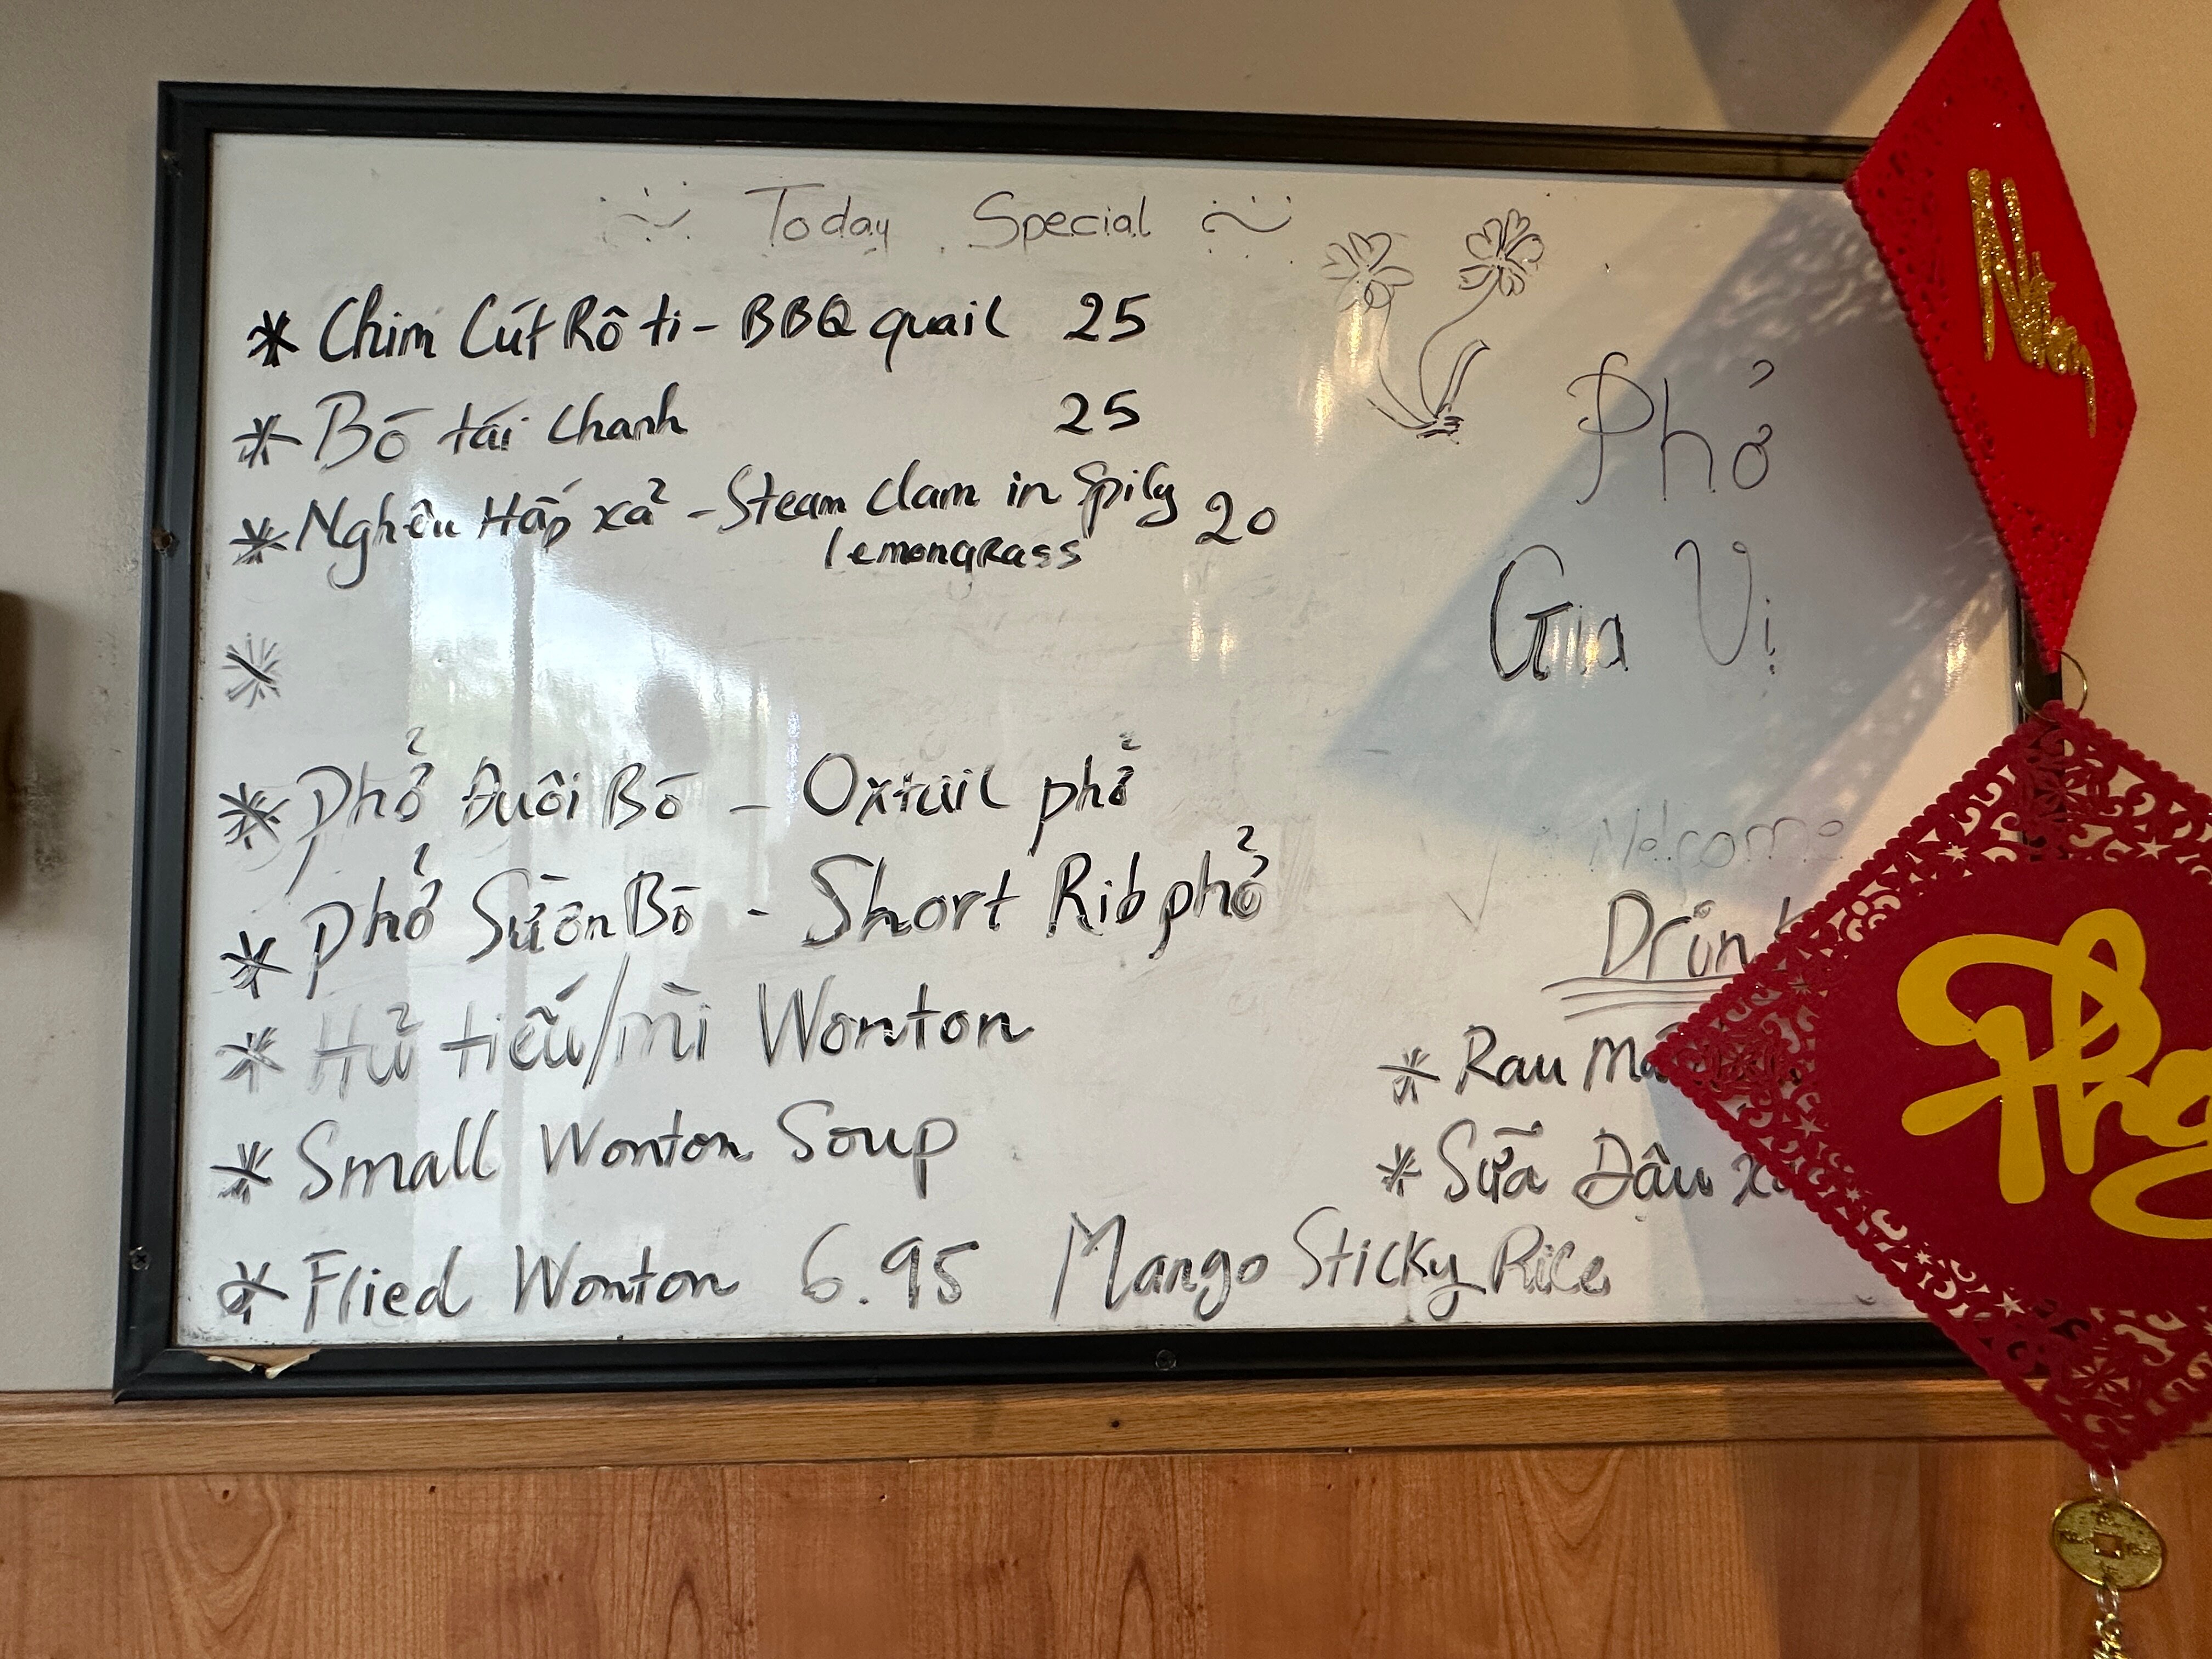 Today Special
* Chim Cút Rô ti - BBQ quail 25
* Bò tái chanh 25
* Nghêu Hấp xả - Steam clam in Spicy 20
lemongrass
*
* Phở Đuôi Bò - Oxtail phở
* Phở Sườn Bò - Short Rib phở
* Hủ tiếu/mì Wonton
* Small Wonton Soup
* Flied Wonton 6.95
Mango Sticky Rice
Phở
Gia Vị
Welcome
Drink
* Rau Má
* Sữa Đậu